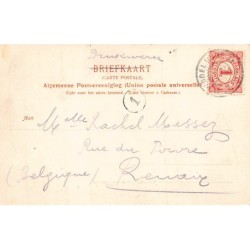 Drukwerk
BRIEFKAART
(CARTE POSTALE)
Algemeene Postvereeniging (Union postale universelle)
Zijde voor het adres bestemd. (Côté réservé à l'adresse.)
1
1
Aan
Mlle Rachel Messez
Rue du Poivre
Renaix
(Belgique)